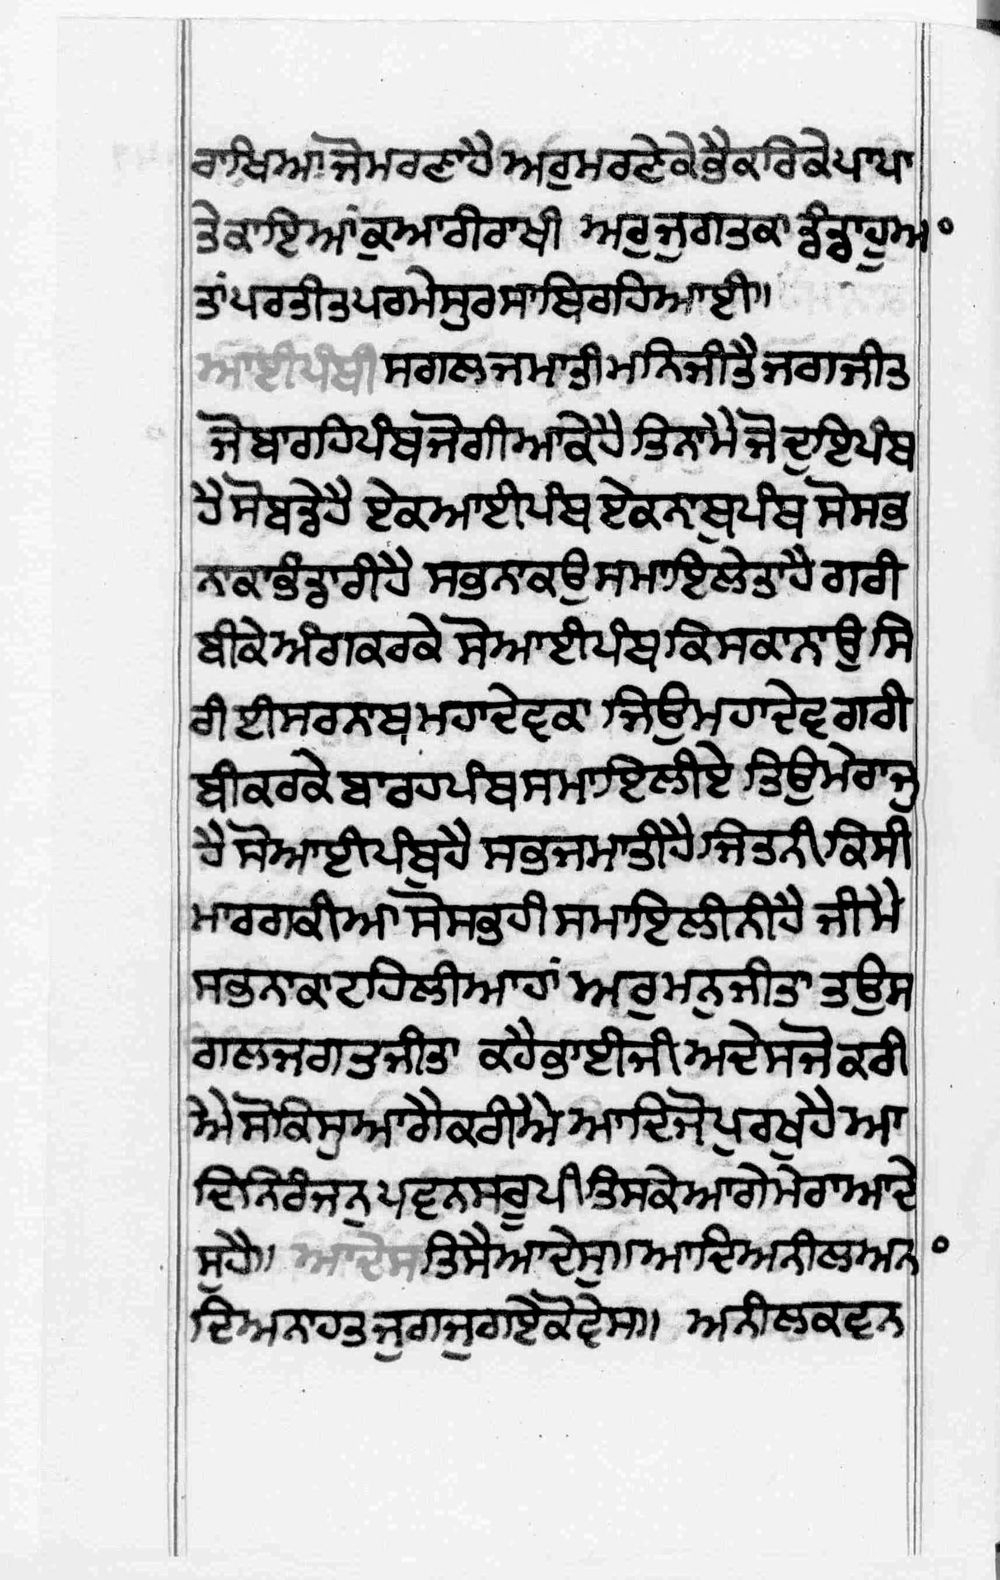 ਰਾਖਿਆ ਜੋ ਮਰਣਾ ਹੈ ਅਰੁ ਮਰਣੇ ਕੇ ਭੈ ਕਰਿਕੇ ਪਾਪਾ
ਤੇ ਕਾਇਆਂ ਕੁਆਰੀ ਰਾਖੀ ਅਰੁ ਜੁਗਤ ਕਾ ਡੰਡਾ ਹੂਆ
ਤਾਂ ਪਰਤੀਤ ਪਰਮੇਸੁਰ ਸਾਥਿ ਰਹਿ ਆਈ॥
ਆਈ ਪੰਥੀ ਸਗਲ ਜਮਾਤੀ ਮਨਿ ਜੀਤੈ ਜਗ ਜੀਤ
ਜੋ ਬਾਰਹਿ ਪੰਥ ਜੋਗੀਆ ਕੇ ਹੈ ਤਿਨਾ ਮੈ ਜੋ ਦੁਇ ਪੰਥ
ਹੈ ਸੋ ਬਡੇ ਹੈ ਏਕ ਆਈ ਪੰਥ ਏਕ ਨਾਥੁ ਪੰਥ ਸੋ ਸਭ
ਨਾ ਕਾ ਭੰਡਾਰੀ ਹੈ ਸਭਨਾ ਕਉ ਸਮਾਇ ਲੇਤਾ ਹੈ ਗਰੀ
ਬੀ ਕੇ ਅੰਗ ਕਰਕੇ ਸੋ ਆਈ ਪੰਥ ਕਿਸ ਕਾ ਨਾਉ ਸਿ
ਰੀ ਈਸਰ ਨਾਥ ਮਹਾਦੇਵ ਕਾ ਜਿਉ ਮਹਾਦੇਵ ਗਰੀ
ਬੀ ਕਰਕੇ ਬਾਰਹ ਪੰਥ ਸਮਾਇ ਲੀਏ ਤਿਉ ਮੇਰਾ ਜੁ
ਹੈ ਸੋ ਆਈ ਪੰਥੁ ਹੈ ਸਭ ਜਮਾਤੀ ਹੈ ਜਿਤਨੀ ਕਿਸੀ
ਮਾਰਗ ਕੀਆ ਸੋ ਸਭੁ ਹੀ ਸਮਾਇ ਲੀਨੀ ਹੈ ਜੀ ਮੈ
ਸਭਨਾ ਕਾ ਟਹਿਲੀਆ ਹਾਂ ਅਰੁ ਮਨੁ ਜੀਤਾ ਤਉ ਸ
ਗਲ ਜਗਤੁ ਜੀਤਾ ਕਹੈ ਭਾਈ ਜੀ ਅਦੇਸ ਜੋ ਕਰੀ
ਐ ਸੋ ਕਿਸੁ ਆਗੈ ਕਰੀਐ ਆਦਿ ਜੋ ਪੁਰਖੁ ਹੈ ਆ
ਦਿ ਨਿਰੰਜਨੁ ਪਵਨ ਸਰੂਪੀ ਤਿਸਕੇ ਆਗੇ ਮੇਰਾ ਆਦੇ
ਸੁ ਹੈ॥ ਆਦੇਸ ਤਿਸੈ ਆਦੇਸੁ॥ ਆਦਿ ਅਨੀਲ ਅਨ
ਦਿ ਅਨਾਹਤ ਜੁਗ ਜੁਗ ਏਕੋ ਵੇਸ॥ ਅਨੀਲ ਕਵਨ